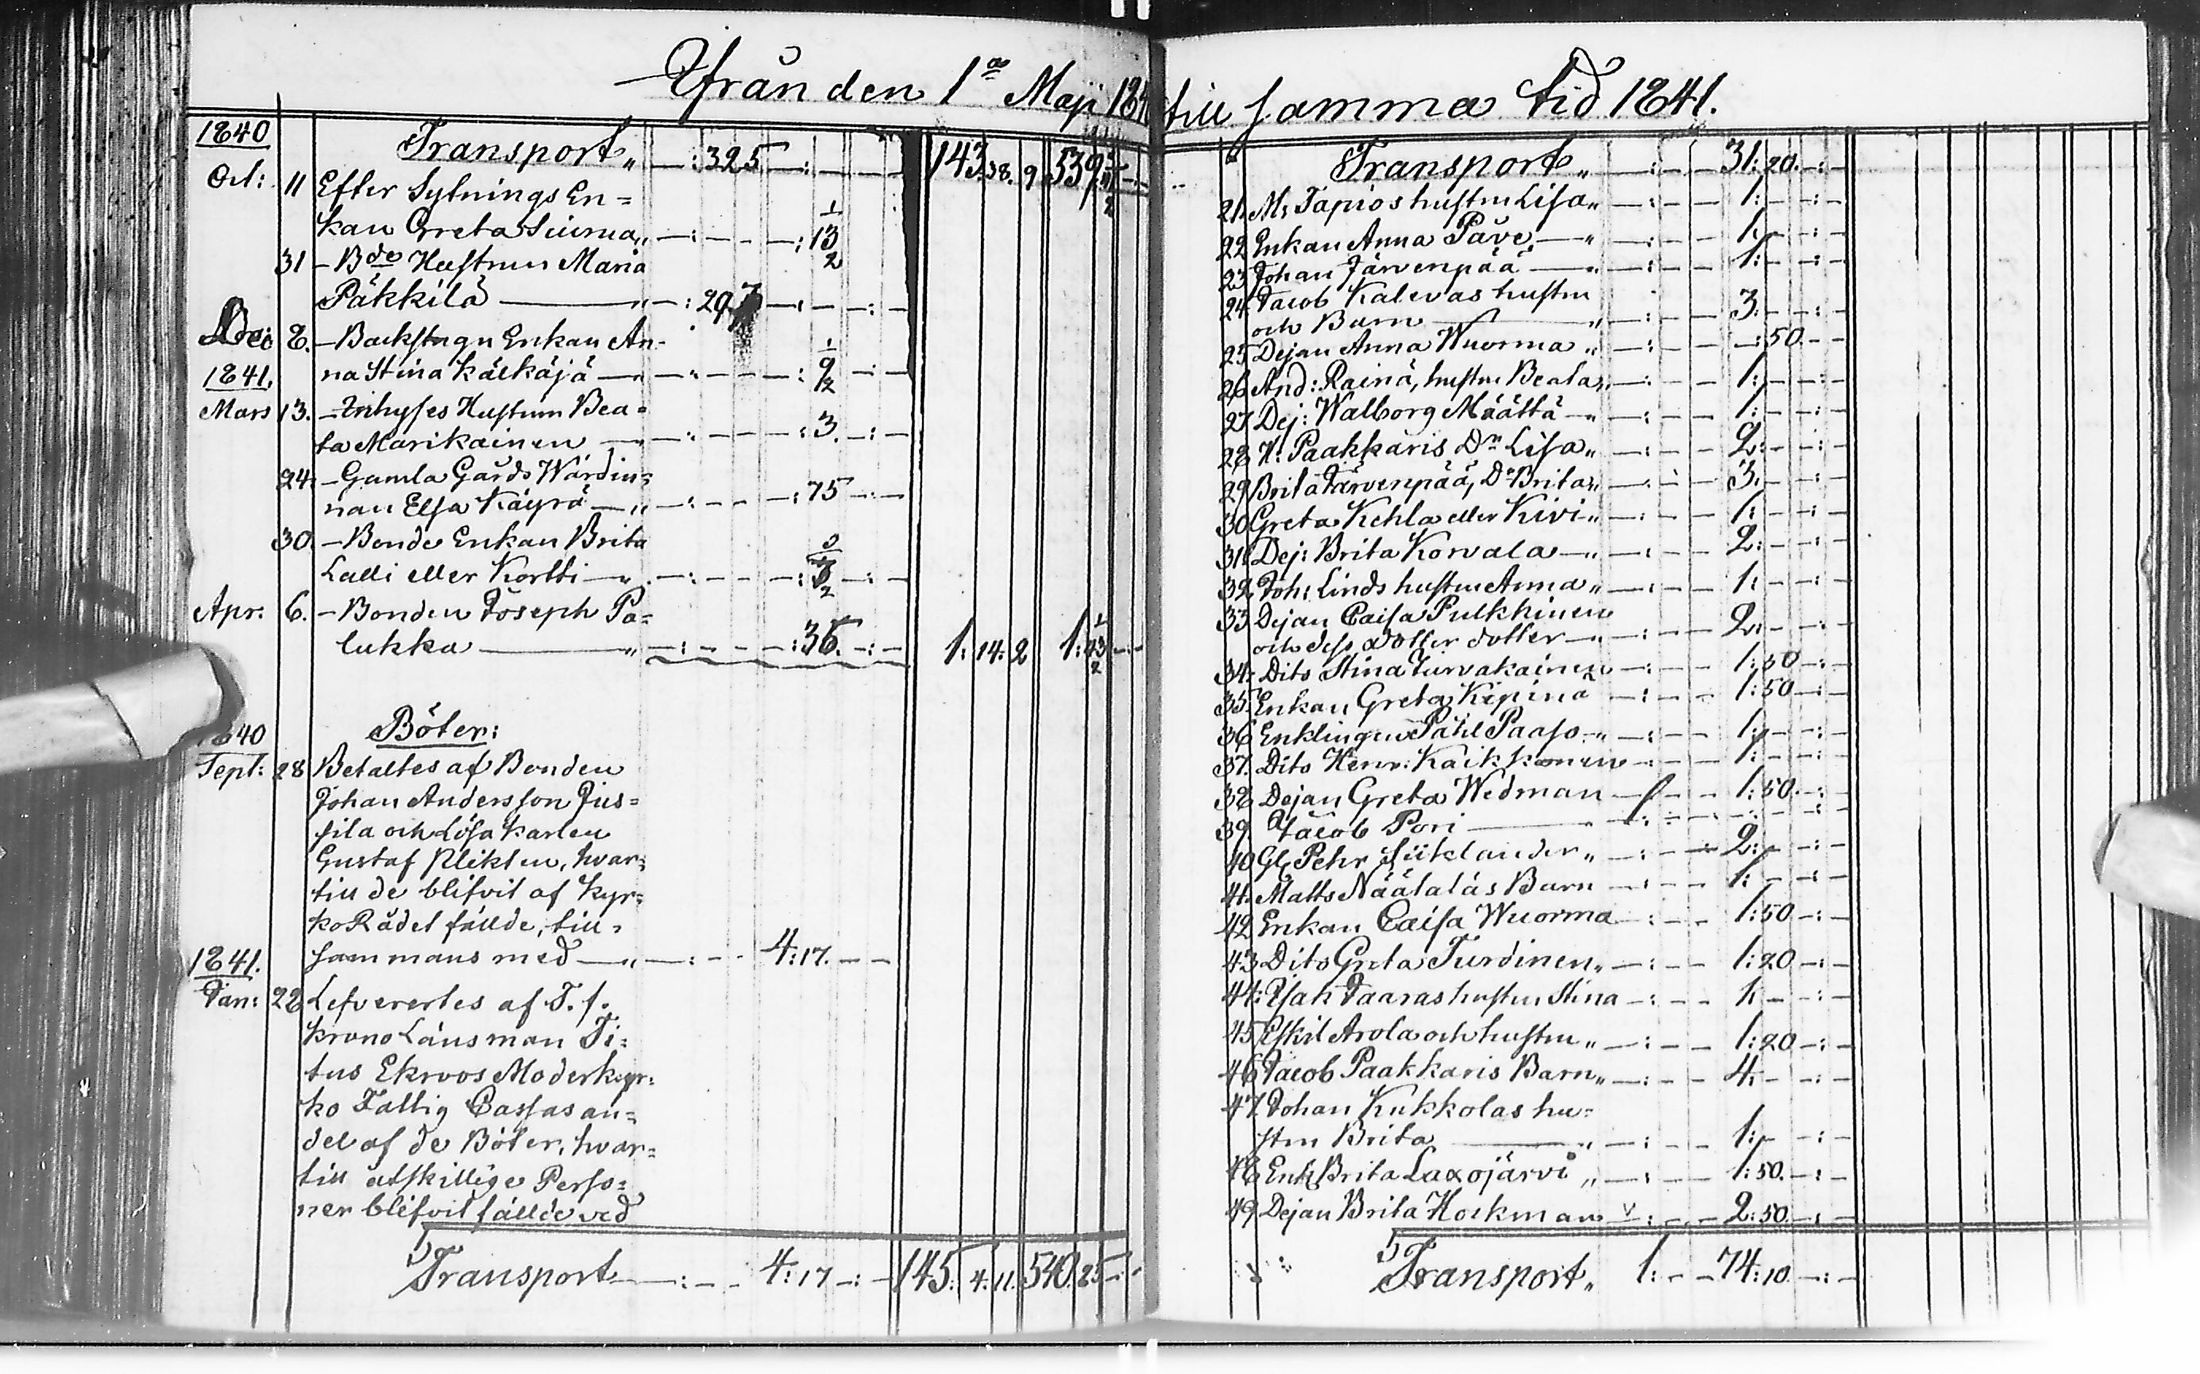 Ifrån den 1a Maji 184 till samma tid 1841.
1840
Transport „ —:325—:—— 143.38.9. 539.
Oct: 11 Efter Sytnings En=
kan Greta Siuma „ —:— — —:13 1/2
31 — Bde Hustrun Maria
Päkkilä ——— „ —:29
Dec: 8. — Backstugu Enkan An-
1841.
na Stina Kälkäjä — —:— — —:9 1/2 —:—
Mars 13. — Inhyses Hustrun Bea=
ta Marikainen — —:— — —:3.—:—
24. — Gamla Gårds Wärdin=
nan Elsa Käyrä — „ —:— — —:75—:—
30. — Bonde Enkan Brita
Lalli eller Kortti — „ —:— — —:
Apr: 6. — Bonden Joseph Pa=
lukka ——— „ —:— — —:36.—:— 1:14:2 1:
Böter:
1840
Sept: 28 Betaltes af Bonden
Johan Andersson Jus=
sila och Lösa karlen
Gustaf Plikten, hvar=
till de blifvit af Kyr=
koRådet fällde, till=
sammans med — „ —:— — 4:17.— —
1841.
Jan: 28 Lefvererles af T. f.
krono Länsman Ti=
tus Ekroos Moderkyr=
ko Fattig Cassas an=
del af de Böter, hvar=
till åtskillige Perso=
ner blifvit fällde ved
Transport —:— — 4:17—:— 145. 4:11. 540.25—:—
Transport „ —:— — 31:20.—:—
21. M: Tapios hustru Lisa „ —:— — 1:—:—
22 Enkan Anna Pave — „ —:— — 1:—:—
23 Johan Järvenpää — „ —:— — 1:—:—
24. Jacob Kalevas hustru
och Barn ——— „ —:— — 3.—:—
25 Dejan Anna Wuorma „ —:— — —:50.—
26 And: Rainä, hustru Beata „ —:— — 1:—:—
27 Dej: Walborg Määttä — „ —:— — 1:—:—
28 H: Paakkaris Dr Lisa „ —:— — 2:—:—
29 Brita Järvenpää, Do Brita „ —:— — 3.—:—
30 Greta Kehla eller Kivi „ —:— — 1:—:—
31. Dej: Brita Korvala — „ —:— — 2:—:—
32 Joh: Linds hustru Anna „ —:— — 1:—:—
33 Dejan Caisa Pulkkinen
och dess dotter dotter — „ —:— — 2:—:—
34. Dito Stina Turvakainen —:— — 1:50—:—
35. Enkan Greta Kipinä —:— — 1:50—:—
36 Enklingen Påhl Paaso „ —:— — 1:—:—
37. Dito Henr: Kaikkonen —:— — 1:—:—
38 Dejan Greta Wedman — 1:50.—:—
39. Jacob Pori ——— 1:— — —:—
40 Gl: Pehr Siiklander „ —:— — 2:—:—
41. Matts Näätaläs Barn —:— — 1:—:—
42 Enkan Caisa Wuorma —:— — 1:50—:—
43 Dito Greta Turdinen „ —:— — 1:20—:—
44: Isak Jaaras hustru Stina —:— — 1:—:—
45 Eskil Arola och hustru „ —:— — 1:20—:—
46 Jacob Paakkaris Barn „ —:— — 4.—:—
47. Johan Kukkolas hu=
stru Brita ——— „ —:— — 1:—:—
48 Enk: Brita Laxojärvi „ —:— — 1:50.—:—
49 Dejan Brita Hoskman —:— — 2:50.—:—
Transport „ 1:— — 74:10.—:—